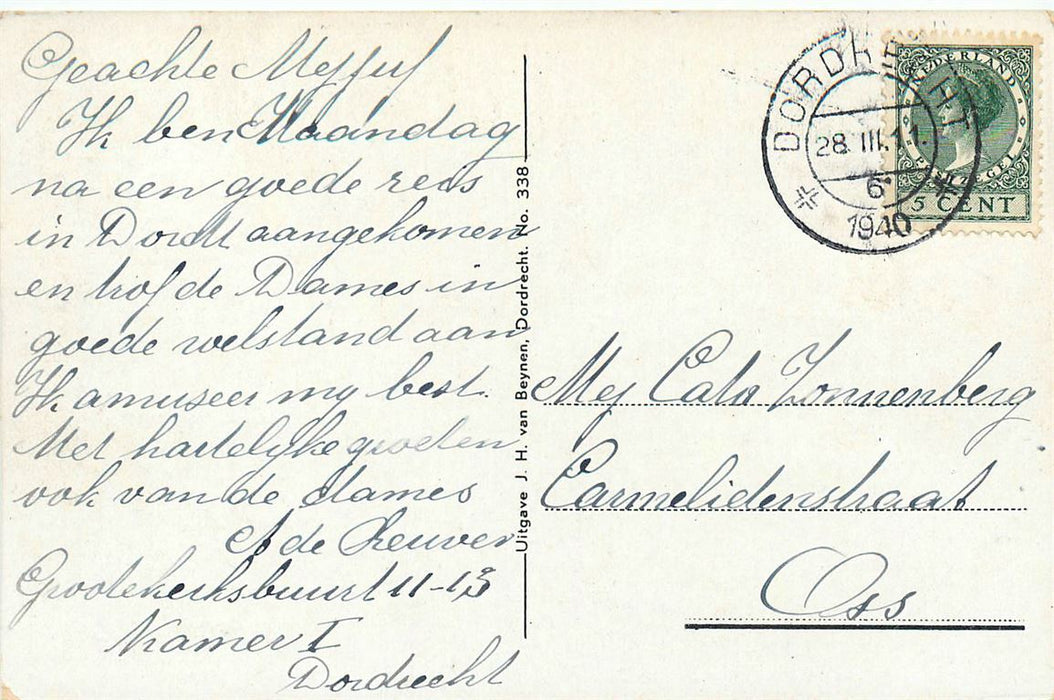 Geachte Mejjuf
Ik ben Maandag
na een goede reis
in Dordt aangekomen
en trof de Dames in
goede welstand aan
Ik amuseer my best.
Met hartelyke groeten
ook van de dames
de Reuver
Grootekerksbuurt 11-13
Kamer I
Dordrecht
Uitgave J. H. van Beynen, Dordrecht. No. 338
DORDRECHT
28. III. 11.
6
1940
NEDERLAND
POSTZEGEL
5 CENT
Mej Cato Zonnenberg
Carmelidenstraat
Oss